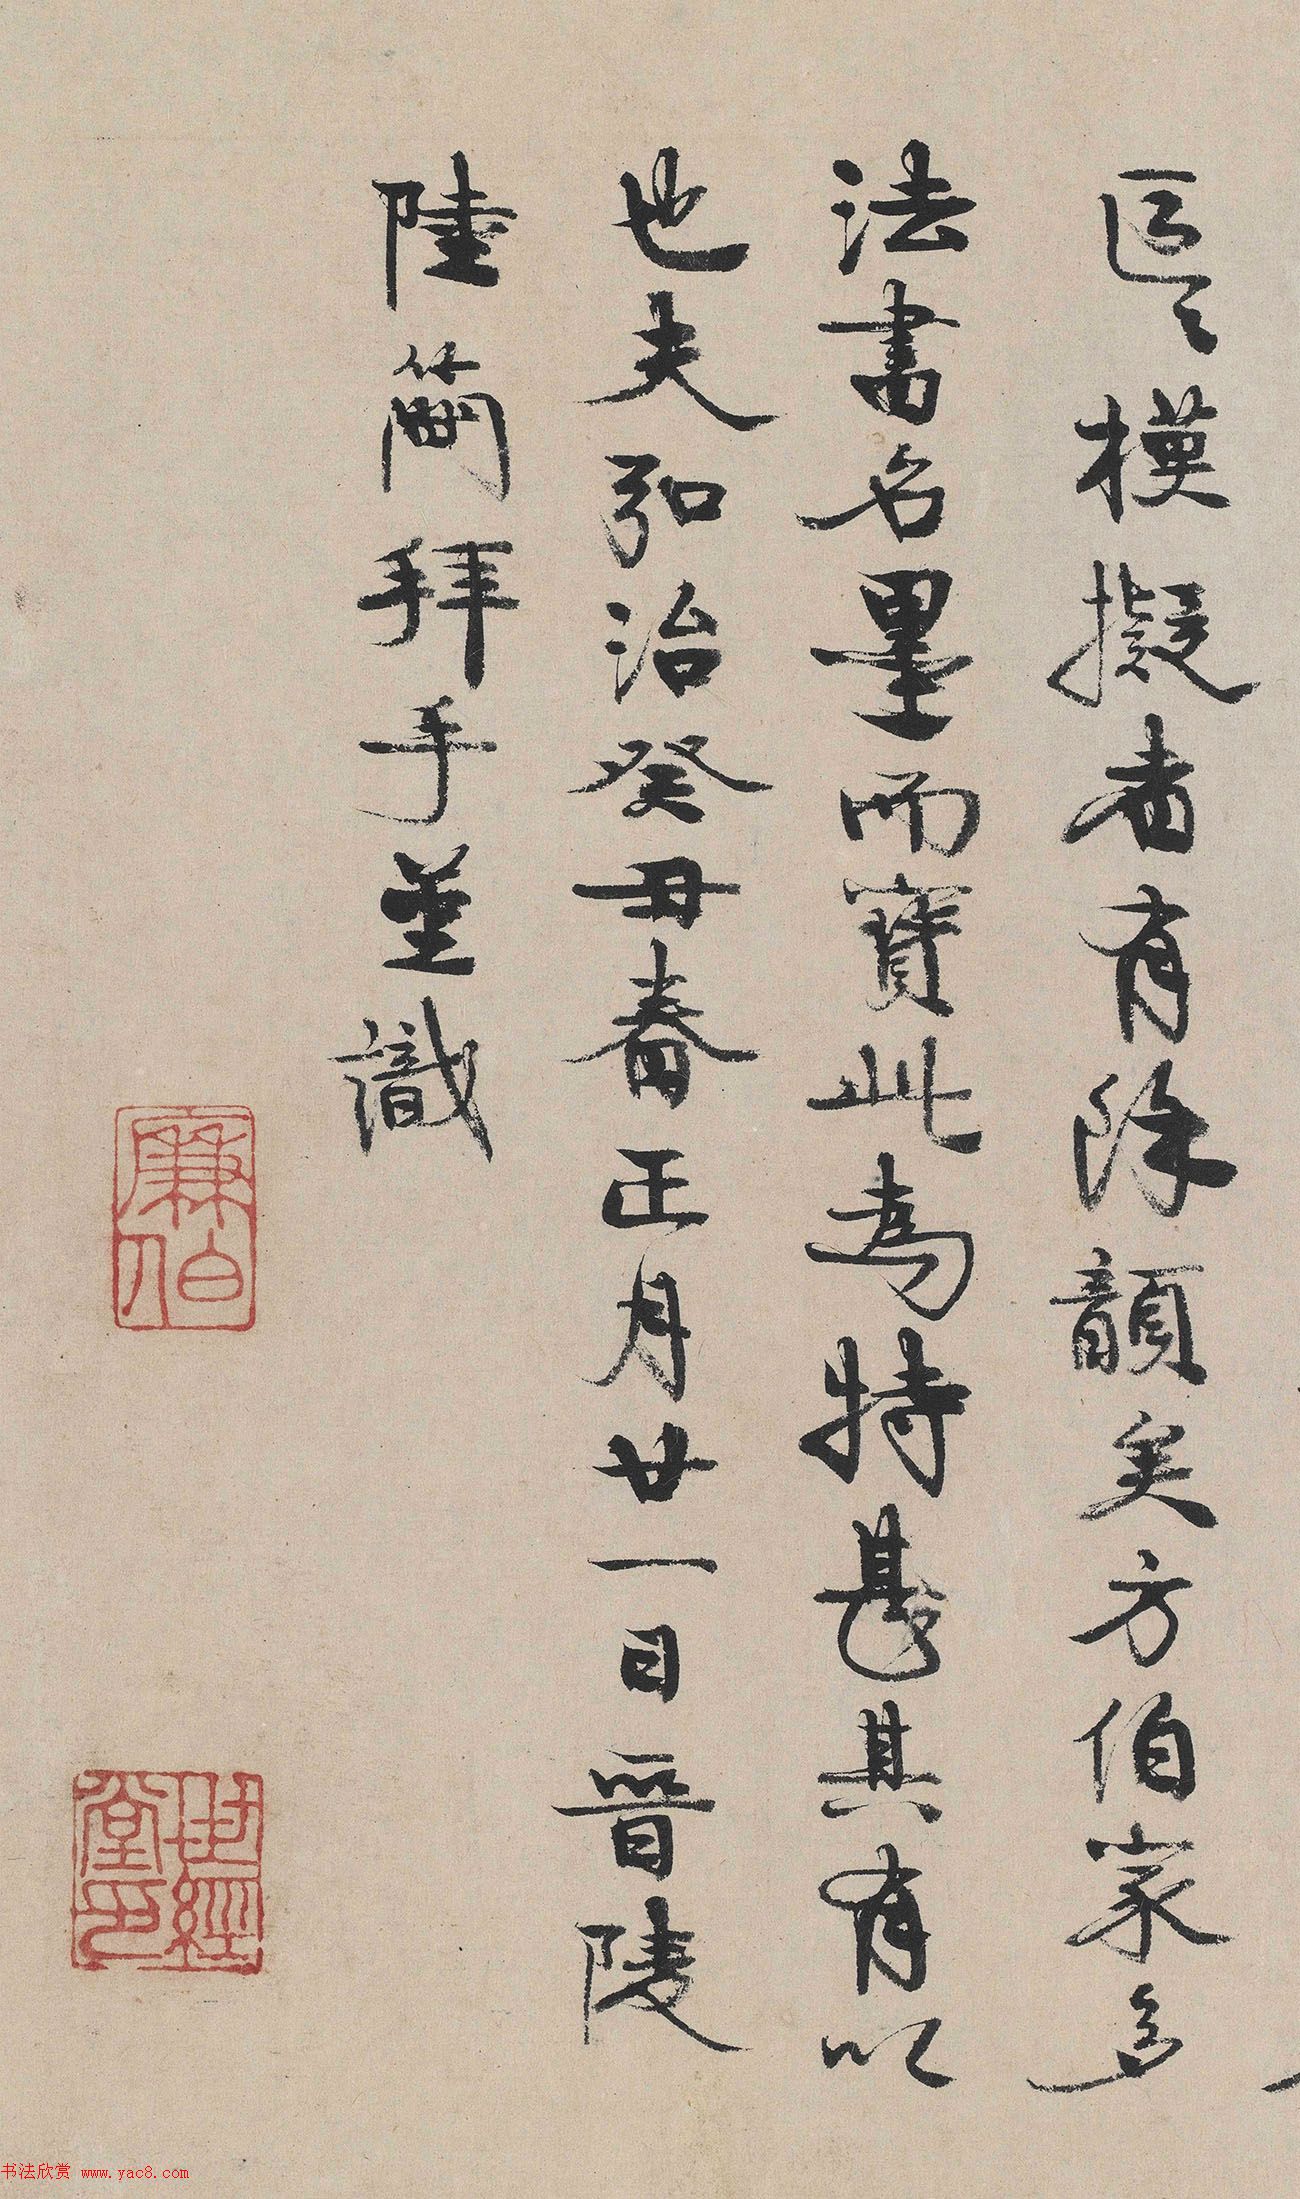 區〻模擬者有除韻矣方伯家多
法書名墨而寶此為特甚其有以
也夫弘治癸丑春正月廿一日晉陵
陸簡拜手並識
廉伯
世經堂印
书法欣赏 www.yac8.com